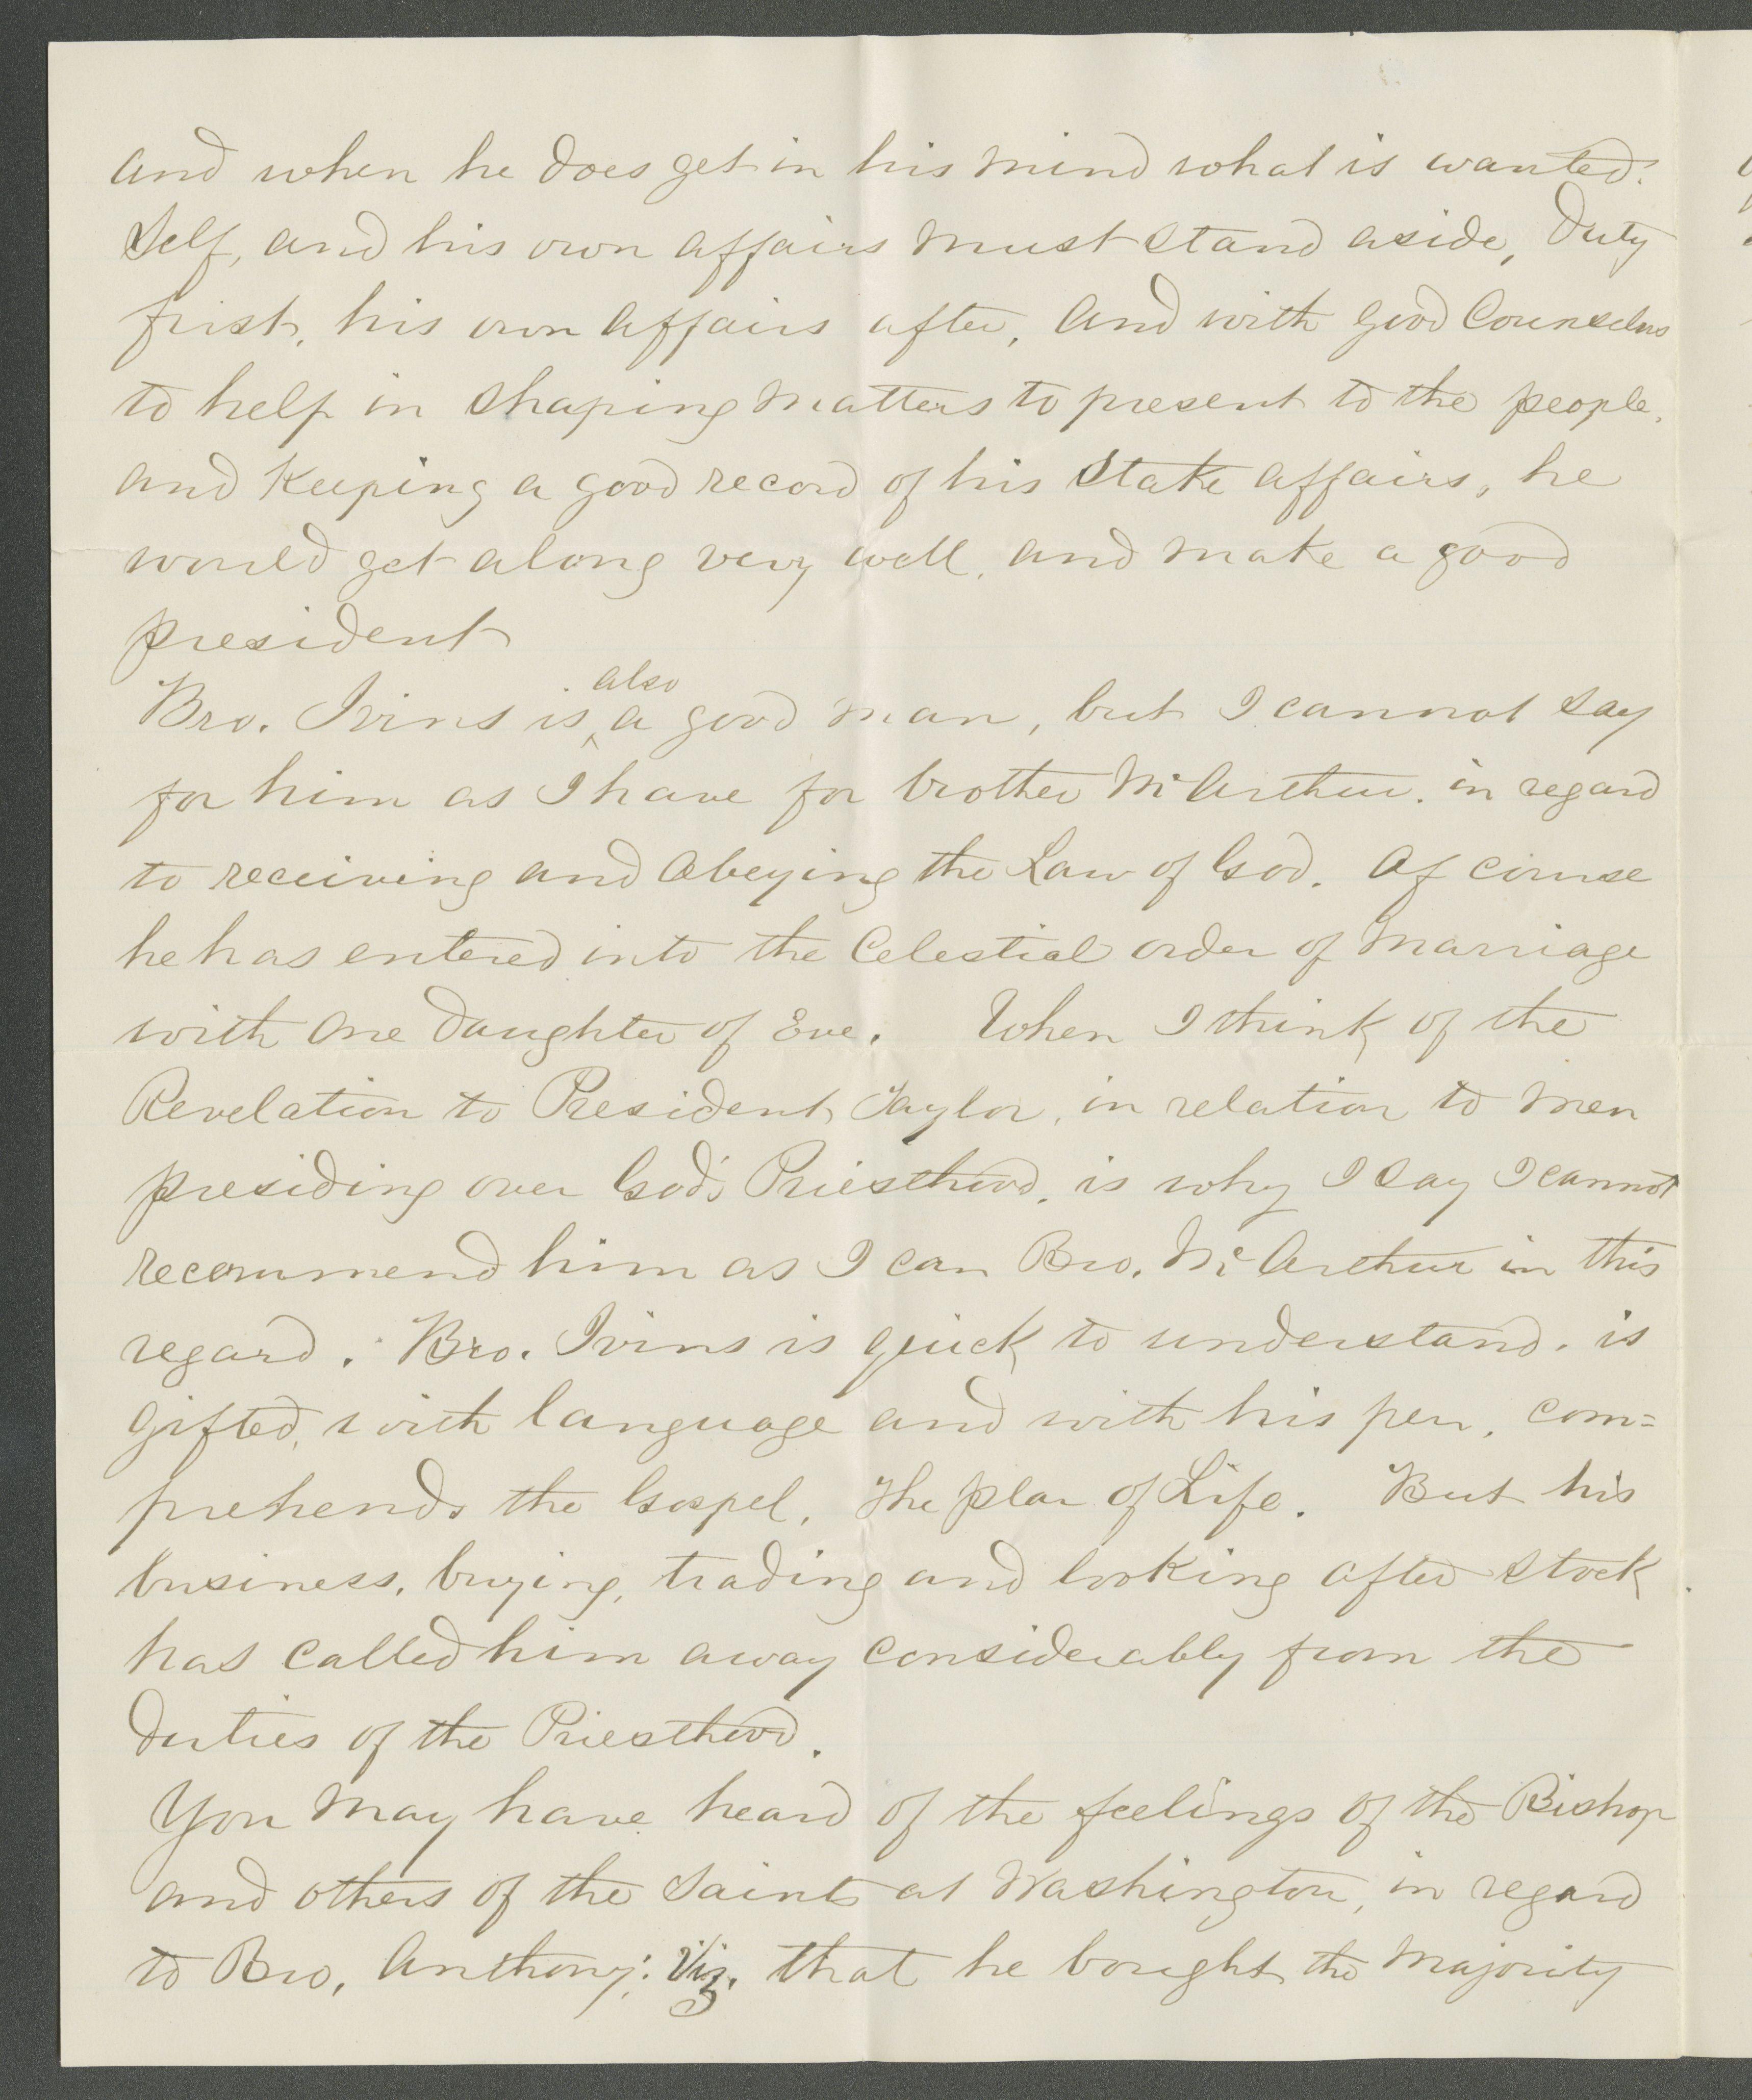 and when he does get in his mind what is wanted.
Self, and his own affairs must stand aside, Duty
frist, his own affairs after, And with good Counselors
to help in shaping matters to present to the people,
and Keeping a good record of his Stake affairs, he
would get along very well, and make a good
president
also
Bro. Ivins is ^ a good man, but I cannot say
for him as I have for brother McArthur. in regard
to receiving and obeying the Law of God. Of course
he has entered into the Celestial order of Marriage
with one Daughter of Eve. When I think of the
Revelation to President Taylor, in relation to men
presiding over God's Priesthood, is why I say I cannot
recommend him as I can Bro. McArthur in this
regard. Bro. Ivins is quick to understand. is
gifted, with language and with his pen, com=
prehends the Gospel, The plan of Life. But his
business, buying, trading and looking after stock
has called him away considerably from the
Duties of the Priesthood.
You may have heard of the feelings of the Bishop
and others of the Saints at Washington, in regard
to Bro, Anthony; Viz. that he bought the majority